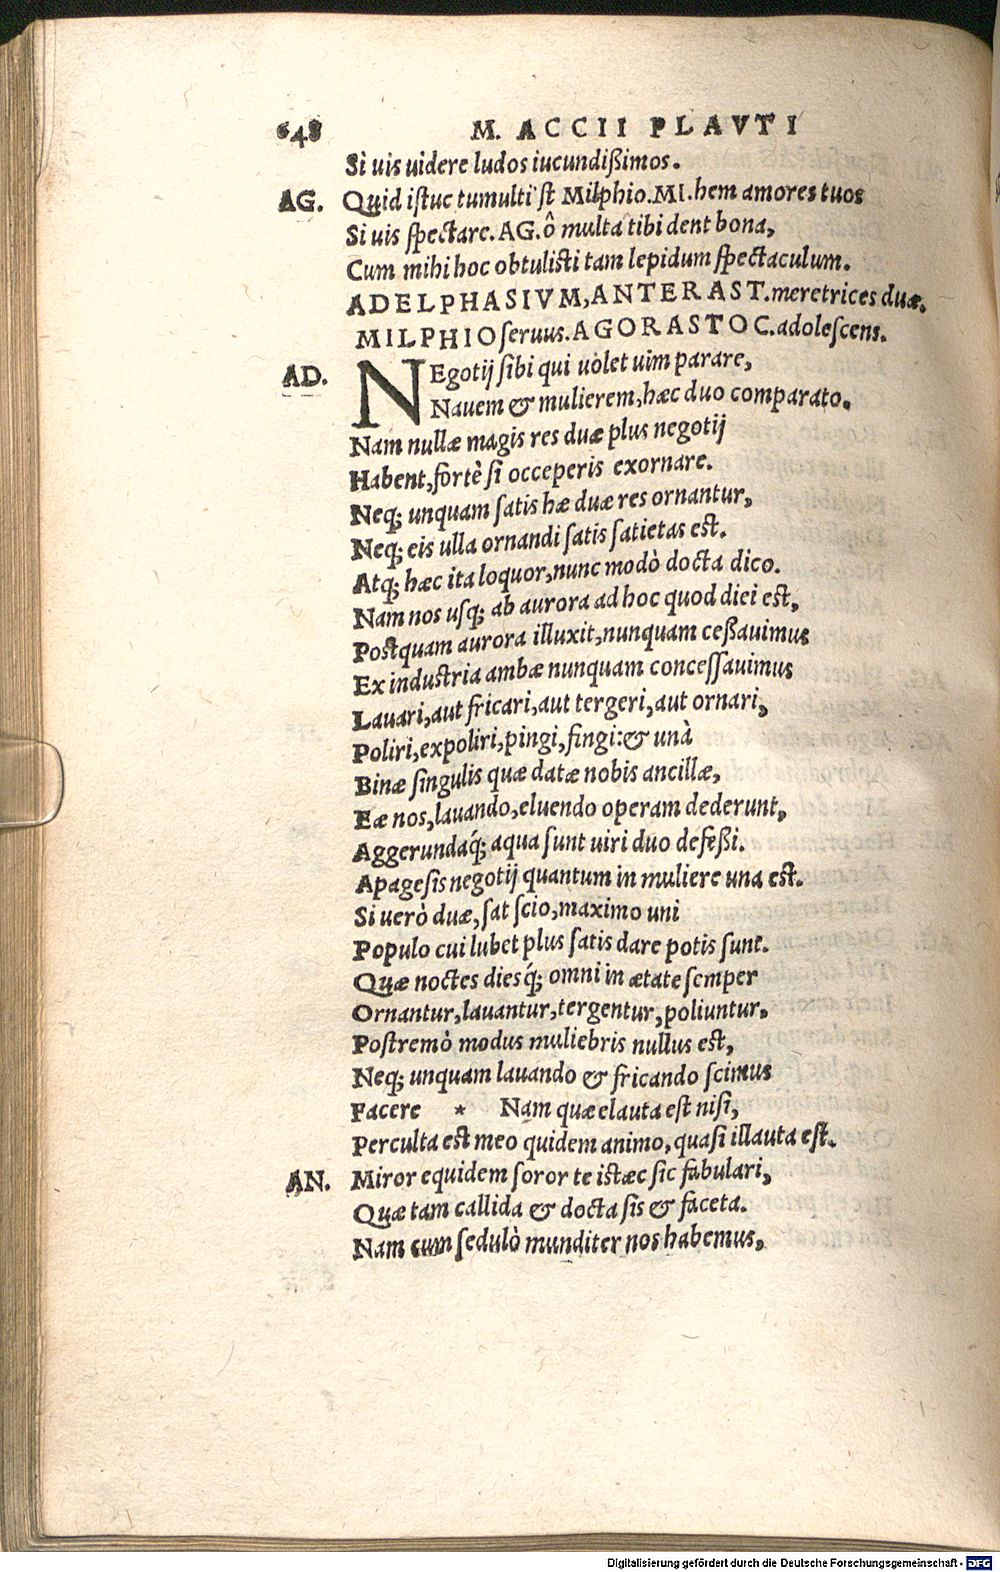 648 M. ACCII PLAVTI
Si uis uidere ludos iucundißimos.
AG. Quid iſtuc tumulti'ſt Milphio. MI. hem amores tuos
Si uis ſpectare. AG. ô multa tibi dent bona,
Cum mihi hoc obtuliſti tam lepidum ſpectaculum.
ADELPHASIVM, ANTERAST. meretrices duæ.
MILPHIO ſeruus. AGORASTOC. adoleſcens.
AD. NEgotij ſibi qui uolet uim parare,
Nauem & mulierem, hæc duo comparato.
Nam nullæ magis res duæ plus negotij
Habent, fortè ſi occeperis exornare.
Neq; unquam ſatis hæ duæ res ornantur,
Neq; eis ulla ornandi ſatis ſatietas eſt.
Atq; hæc ita loquor, nunc modò docta dico.
Nam nos uſq; ab aurora ad hoc quod diei eſt,
Poſtquam aurora illuxit, nunquam ceßauimus
Ex induſtria ambæ nunquam conceſſauimus
Lauari, aut fricari, aut tergeri, aut ornari,
Poliri, expoliri, pingi, fingi: & unà
Binæ ſingulis quæ datæ nobis ancillæ,
Eæ nos, lauando, eluendo operam dederunt,
Aggerundaq́; aqua ſunt uiri duo defeßi.
Apageſis negotij quantum in muliere una eſt.
Si uerò duæ, ſat ſcio, maximo uni
Populo cui lubet plus ſatis dare potis ſunt.
Quæ noctes diesq́; omni in ætate ſemper
Ornantur, lauantur, tergentur, poliuntur,
Poſtremò modus muliebris nullus eſt,
Neq; unquam lauando & fricando ſcimus
Facere * Nam quæ elauta eſt niſi,
Perculta eſt meo quidem animo, quaſi illauta eſt.
AN. Miror equidem ſoror te iſtæc ſic fabulari,
Quæ tam callida & docta ſis & faceta.
Nam cum ſedulò munditer nos habemus,
Digitalisierung gefördert durch die Deutsche Forschungsgemeinschaft - DFG